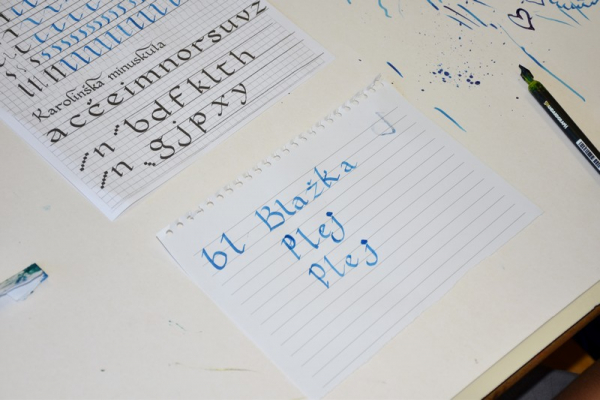 Karolinška minuskula
acčeimnorsuvz
n bdfklth
n gjpxy
bl Blažka
Plej
Plej